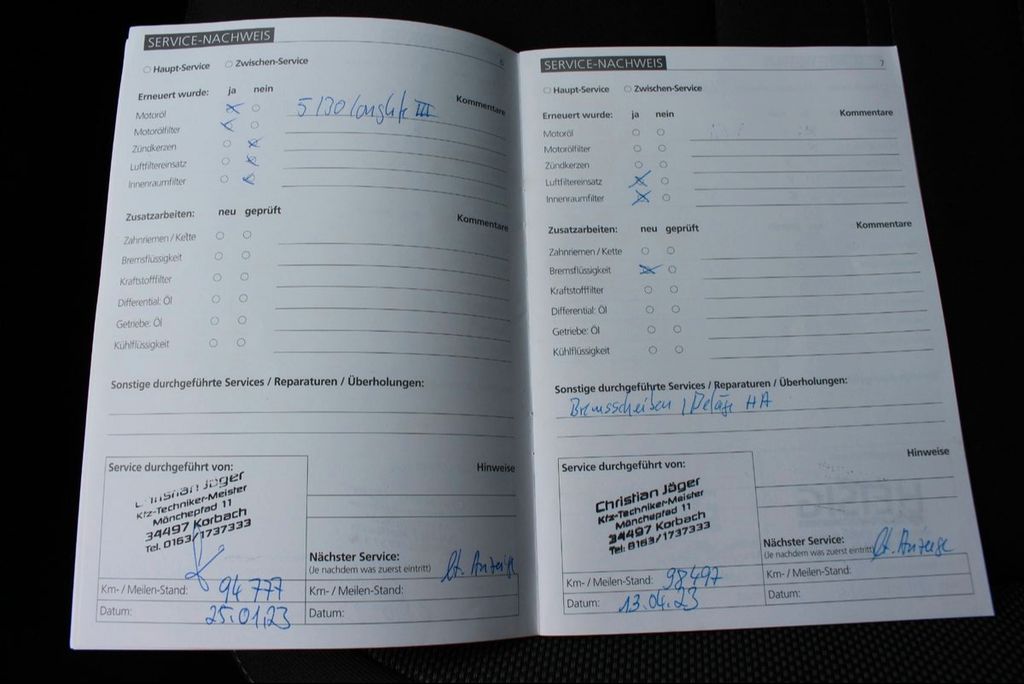 SERVICE-NACHWEIS
6
Haupt-Service Zwischen-Service
Erneuert wurde: ja nein Kommentare
Motoröl 5/30 Longlife III
Motorölfilter
Zündkerzen
Luftfiltereinsatz
Innenraumfilter
Zusatzarbeiten: neu geprüft Kommentare
Zahnriemen / Kette
Bremsflüssigkeit
Kraftstofffilter
Differential: Öl
Getriebe: Öl
Kühlflüssigkeit
Sonstige durchgeführte Services / Reparaturen / Überholungen:
Service durchgeführt von:
Christian Jäger
Kfz-Techniker-Meister
Mönchepfad 11
34497 Korbach
Tel. 0163/1737333
Hinweise
Nächster Service:
(Je nachdem was zuerst eintritt) lt. Anzeige
Km- / Meilen-Stand: 94 777
Km- / Meilen-Stand:
Datum: 25.01.23
Datum:
SERVICE-NACHWEIS
7
Haupt-Service Zwischen-Service
Erneuert wurde: ja nein Kommentare
Motoröl
Motorölfilter
Zündkerzen
Luftfiltereinsatz
Innenraumfilter
Zusatzarbeiten: neu geprüft Kommentare
Zahnriemen / Kette
Bremsflüssigkeit
Kraftstofffilter
Differential: Öl
Getriebe: Öl
Kühlflüssigkeit
Sonstige durchgeführte Services / Reparaturen / Überholungen:
Bremsscheiben / Beläge HA
Service durchgeführt von:
Christian Jäger
Kfz-Techniker-Meister
Mönchepfad 11
34497 Korbach
Tel. 0163/1737333
Hinweise
Nächster Service:
(Je nachdem was zuerst eintritt) lt. Anzeige
Km- / Meilen-Stand: 98497
Km- / Meilen-Stand:
Datum: 13.04.23
Datum: